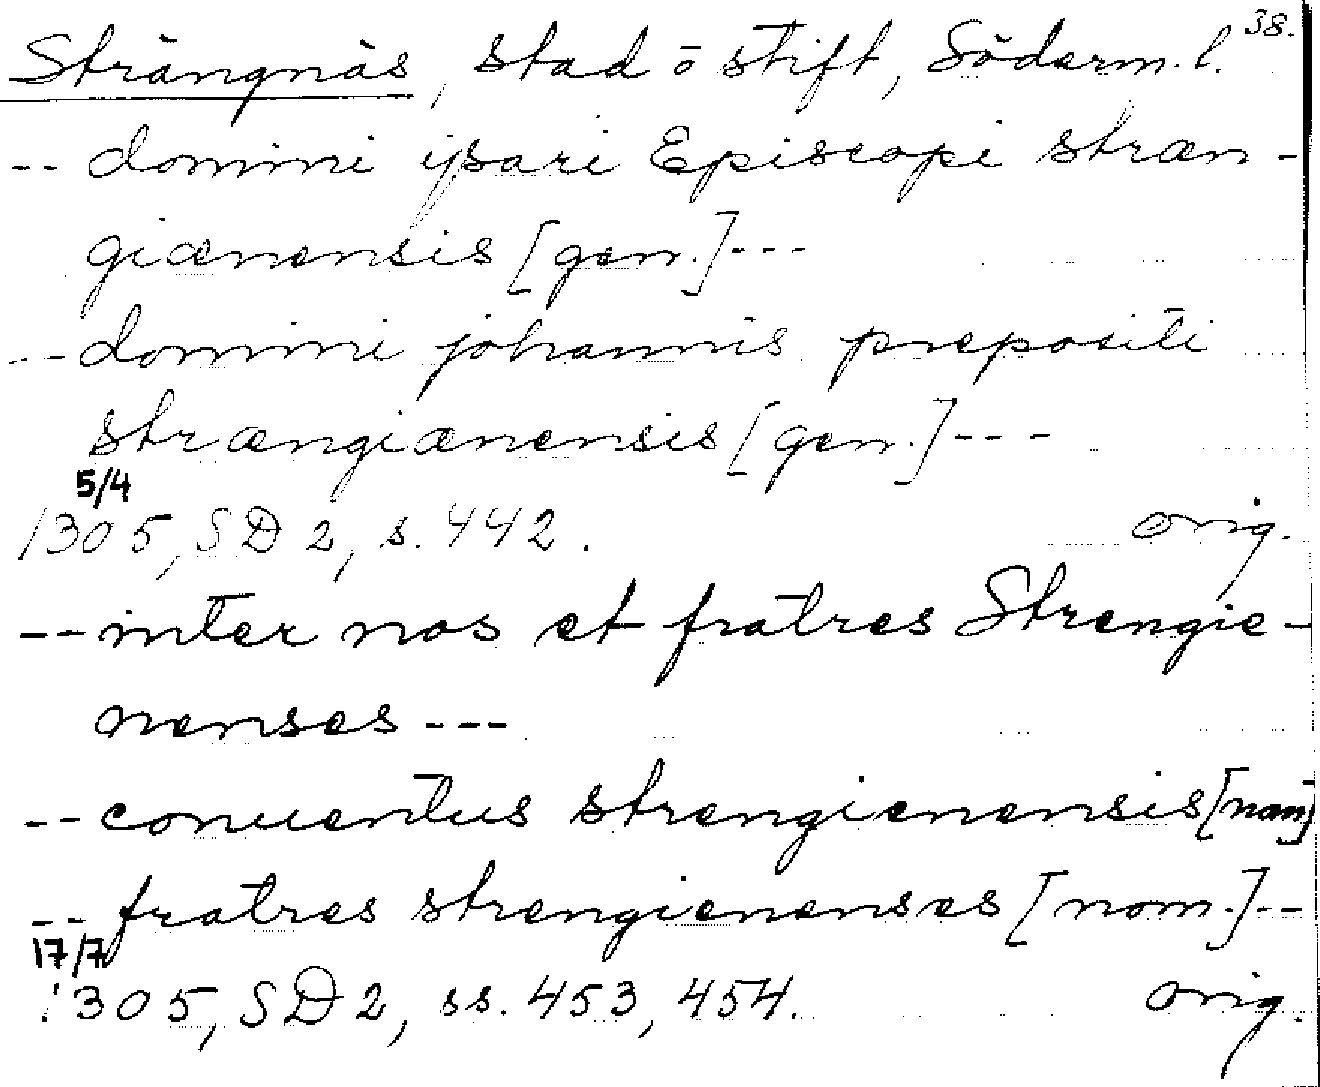 38.
Strängnäs, stad o stift, Söderm.l.
-- domini ysari Episcopi stræn-
giænensis [gen.]---
--domini johannis prepositi
strængiænensis [gen.]---
5/4
1305, SD 2, s. 442. orig.
-- inter nos et fratres Strengie-
nenses ---
-- conuentus strengienensis [nom]
-- fratres strengienenses [nom.]--
17/7
1305, SD 2, ss. 453, 454. orig.